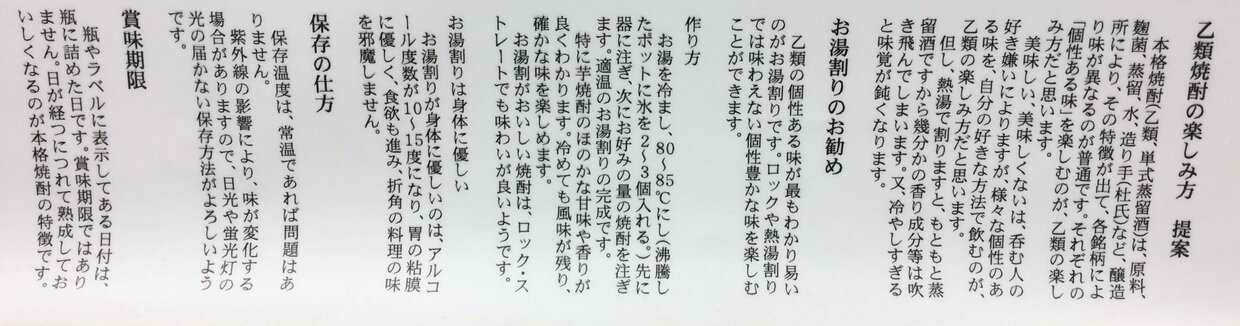 乙類焼酎の楽しみ方　提案
本格焼酎(乙類、単式蒸留酒)は、原料、
麹菌、蒸留、水、造り手(杜氏)など、醸造
所により、その特徴が出て、各銘柄によ
り味が異なるのが普通です。それぞれの
「個性ある味」を楽しむのが、乙類の楽し
み方だと思います。
美味しい、美味しくないは、呑む人の
好き嫌いによりますが、様々な個性のあ
る味を、自分の好きな方法で飲むのが、
乙類の楽しみ方だと思います。
但し、熱湯で割りますと、もともと蒸
留酒ですから幾分かの香り成分等は吹
き飛んでしまいます。又、冷やしすぎる
と味覚が鈍くなります。
お湯割りのお勧め
乙類の個性ある味が最もわかり易い
のがお湯割りです。ロックや熱湯割り
では味わえない個性豊かな味を楽しむ
ことができます。
作り方
お湯を冷まし、80～85℃にし(沸騰し
たポットに氷を2～3個入れる。)先に
器に注ぎ、次にお好みの量の焼酎を注ぎ
ます。適温のお湯割りの完成です。
特に芋焼酎のほのかな甘味や香りが
良くわかります。冷めても風味が残り、
確かな味を楽しめます。
お湯割がおいしい焼酎は、ロック・ス
トレートでも味わいが良いようです。
お湯割りは身体に優しい
お湯割りが身体に優しいのは、アルコ
ール度数が10～15度になり、胃の粘膜
に優しく、食欲も進み、折角の料理の味
を邪魔しません。
保存の仕方
保存温度は、常温であれば問題はあ
りません。
紫外線の影響により、味が変化する
場合がありますので、日光や蛍光灯の
光の届かない保存方法がよろしいよう
です。
賞味期限
瓶やラベルに表示してある日付は、
瓶に詰めた日です。賞味期限ではあり
ません。日が経つにつれて熟成してお
いしくなるのが本格焼酎の特徴です。